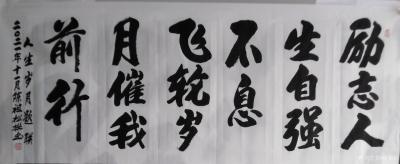 励志人
生自强
不息
飞轮岁
月催我
前行
人生岁月题
二〇二一年十一月陈祖松